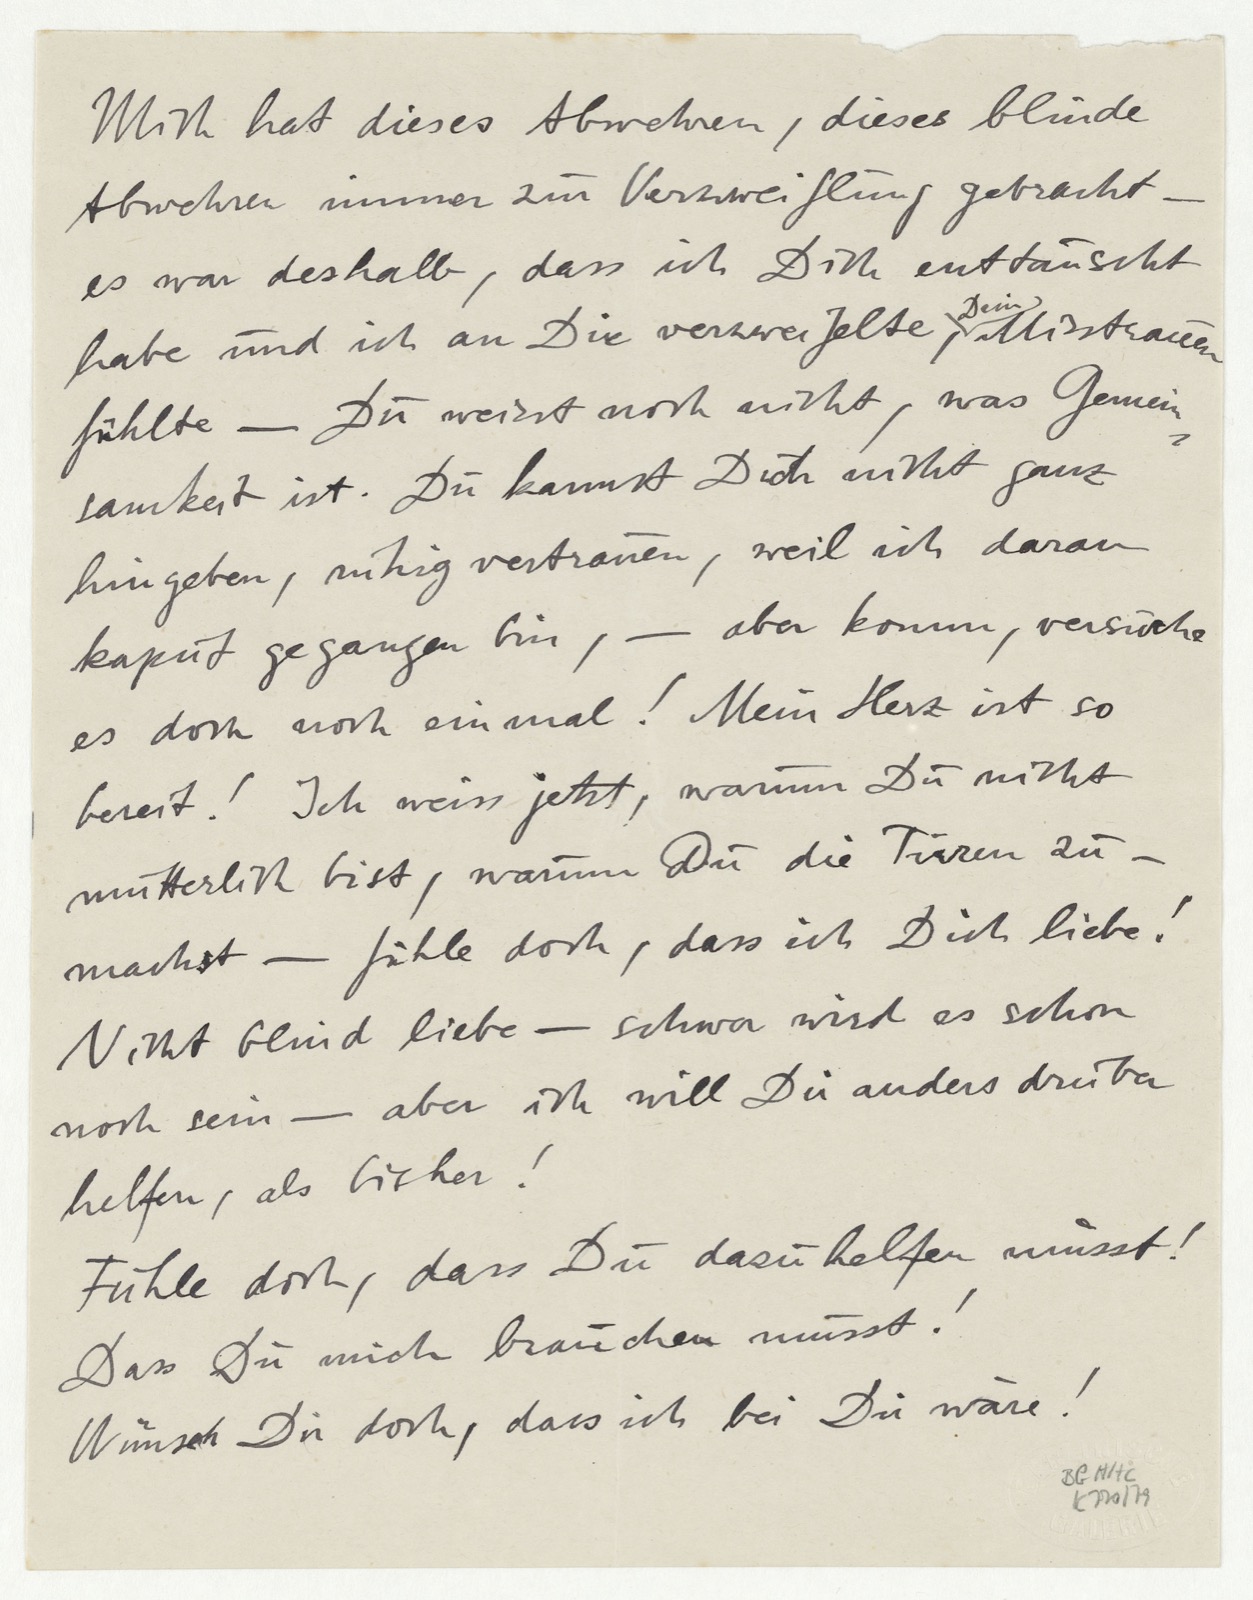 Mich hat dieses Abwehren, dieses blinde
Abwehren immer zur Verzweiflung gebracht —
es war deshalb, dass ich Dich enttäuscht
habe und ich an Dir verzweifelte, Dein Misstrauen
fühlte — Du weisst noch nicht, was Gemein-
samkeit ist. Du kannst Dich nicht ganz
hingeben, ruhig vertrauen, weil ich daran
kaput gegangen bin, — aber komm, versuche
es doch noch einmal! Mein Herz ist so
bereit! Ich weiss jetzt, warum Du nicht
mütterlich bist, warum Du die Türen zu-
machst — fühle doch, dass ich Dich liebe!
Nicht blind liebe — schwer wird es schon
noch sein — aber ich will Dir anders drüber
helfen, als bisher!
Fühle doch, dass Du dazu helfen müsst!
Dass Du mich brauchen müsst!
Wünsch Dir doch, dass ich bei Dir wäre!
BG HHC
K 770/79